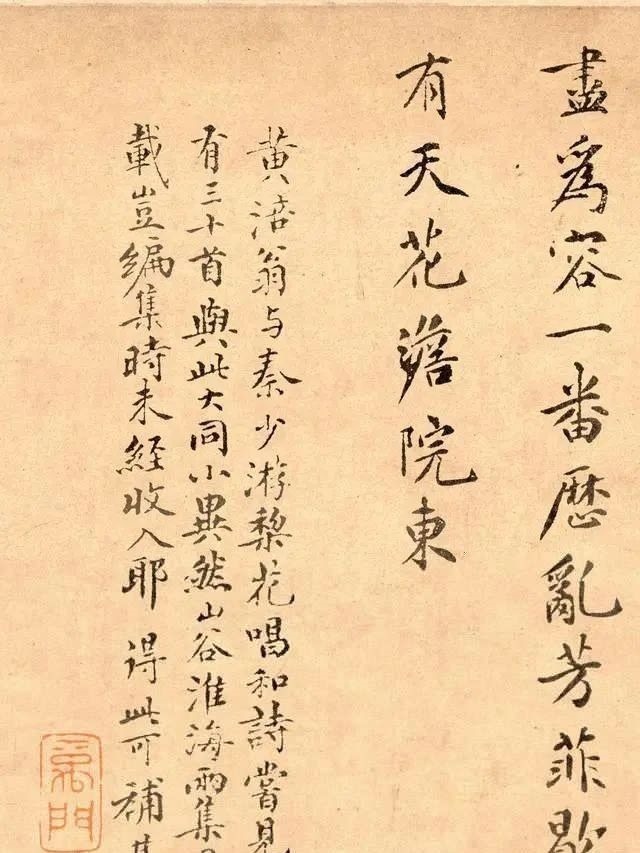 盡爲容一番歷亂芳菲歇
有天花澹院東
黄涪翁与秦少游棃花唱和詩嘗見
有三十首與此大同小異然山谷淮海兩集
載豈編集時未經收入耶 得此可補